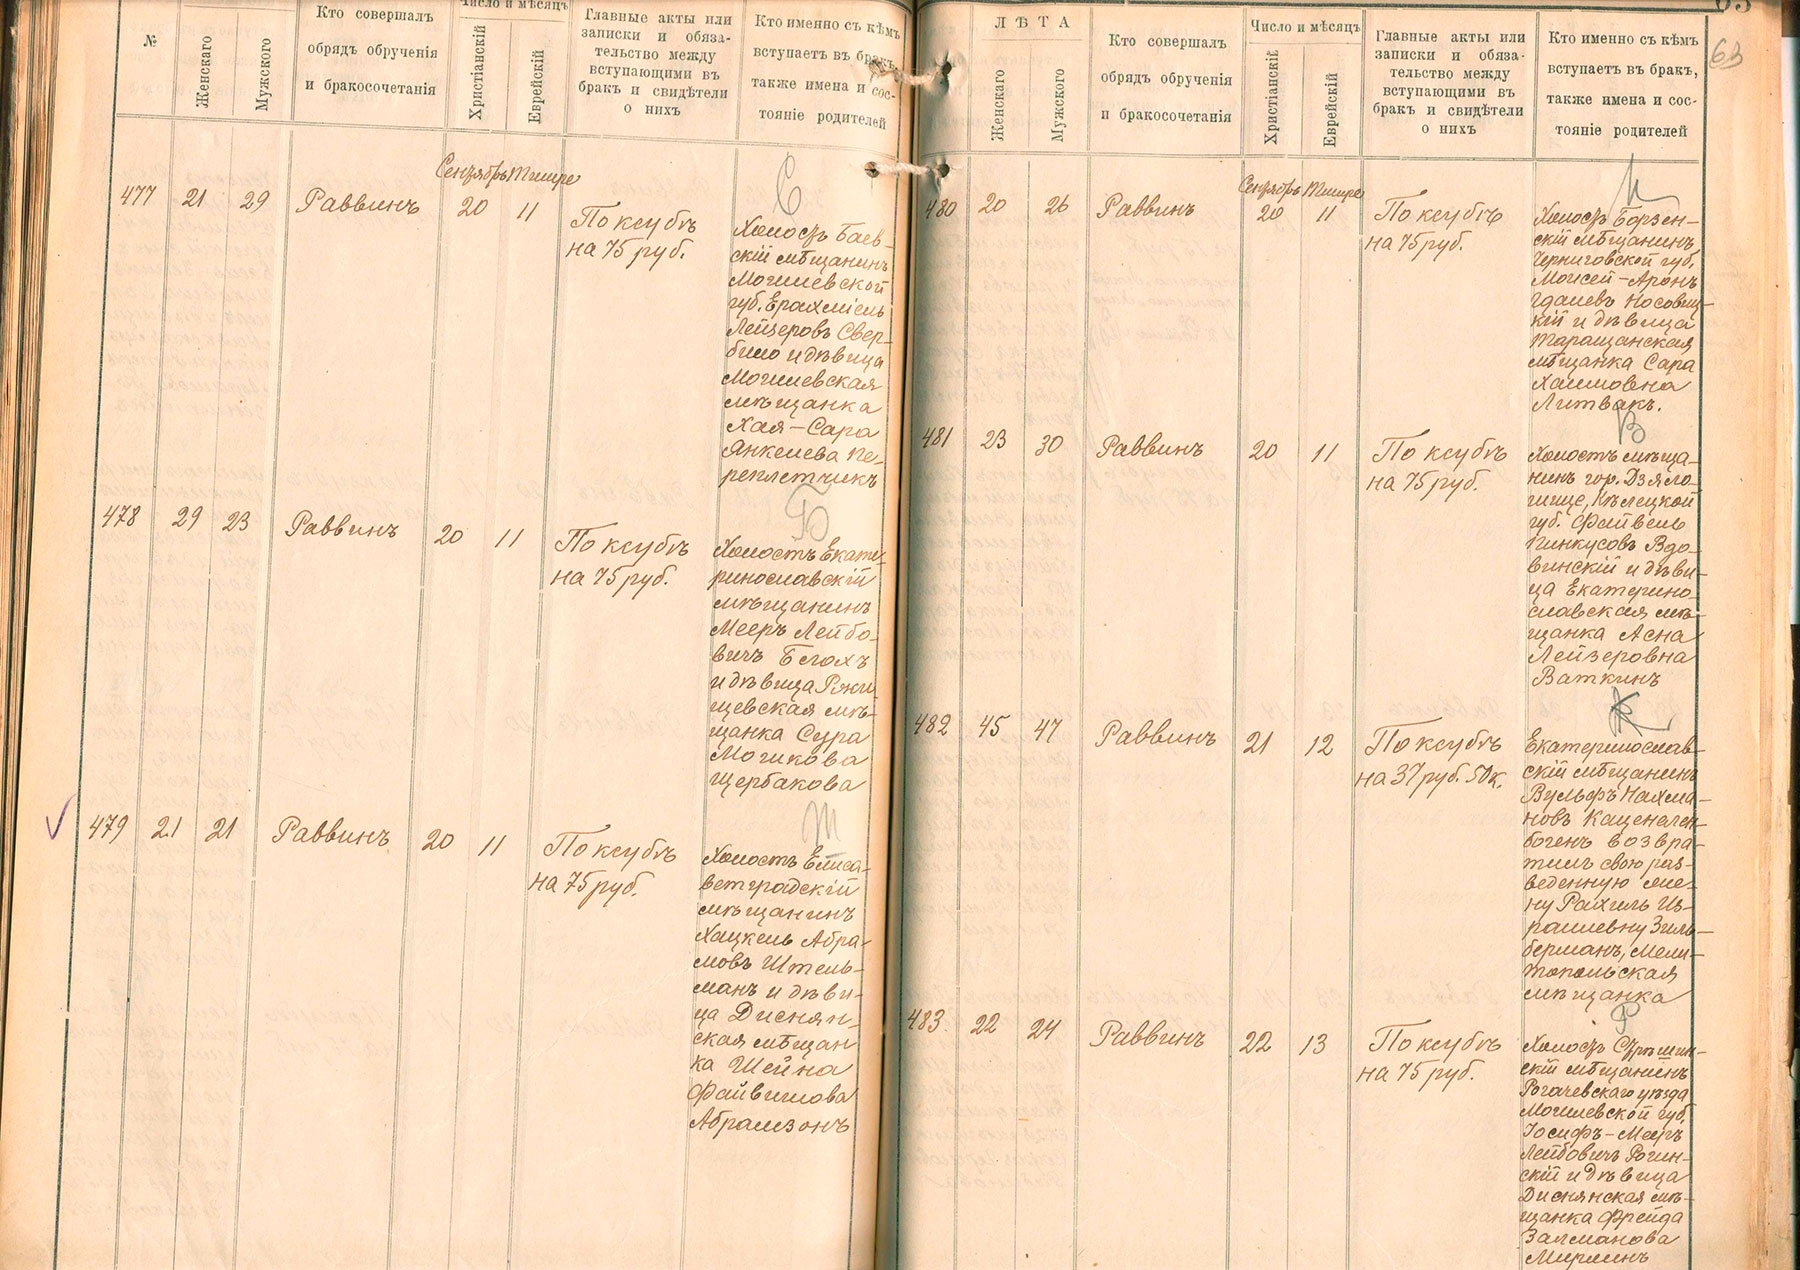 №
Женскаго
Мужского
Кто совершалъ
обрядъ обрученія
и бракосочетанія
Число и мѣсяцъ
Христіанскій
Еврейскій
Главные акты или
записки и обяза-
тельство между
вступающими въ
бракъ и свидѣтели
о нихъ
Кто именно съ кѣмъ
вступаетъ въ бракъ,
также имена и сос-
тояніе родителей
Сентябрь Тишре
477 21 29 Раввинъ 20 11 По ксубѣ
на 75 руб.
С
Холостъ Баев-
скій мѣщанинъ
Могилевской
губ. Ерахміель
Лейзеровъ Свер-
било и дѣвица
Могилевская
мѣщанка
Хая-Сара
Янкелева Пе-
реплетчикъ
478 29 23 Раввинъ 20 11 По ксубѣ
на 75 руб.
Б
Холостъ Екате-
ринославскій
мѣщанинъ
Мееръ Лейбо-
вичъ Блохъ
и дѣвица Ржи-
щевская мѣ-
щанка Сура
Мошкова
Щербакова
479 21 21 Раввинъ 20 11 По ксубѣ
на 75 руб.
Ш
Холостъ Елиса-
ветградскій
мѣщанинъ
Хацкель Абра-
мовъ Штель-
манъ и дѣви-
ца Диснян-
ская мѣщан
ка Шейна
Файвишова
Абрамзонъ
63
ЛѢТА
Женскаго
Мужского
Кто совершалъ
обрядъ обрученія
и бракосочетанія
Число и мѣсяцъ
Христіанскій
Еврейскій
Главные акты или
записки и обяза-
тельство между
вступающими въ
бракъ и свидѣтели
о нихъ
Кто именно съ кѣмъ
вступаетъ въ бракъ,
также имена и сос-
тояніе родителей
63
Сентябрь Тишре
480 20 26 Раввинъ 20 11 По ксубѣ
на 75 руб.
Н
Холостъ Борзен-
скій мѣщанинъ
Черниговской губ.
Моисей-Аронъ
Гдалевъ Носовиц-
кій и дѣвица
Таращанская
мѣщанка Сара
Хаимовна
Литвакъ.
481 23 30 Раввинъ 20 11 По ксубѣ
на 75 руб.
В
Холостъ мѣща-
нинъ гор. Дзяло-
шице, Кѣлецкой
губ. Файвель
Пинкусовъ Вдо-
винскій и дѣви-
ца Екатерино-
славская мѣ-
щанка Асна
Лейзеровна
Ваткинъ
482 45 47 Раввинъ 21 12 По ксубѣ
на 37 руб. 50 к.
К
Екатеринослав-
скій мѣщанинъ
Вульфъ Нахма-
новъ Каценелен-
богенъ возвра-
тилъ свою раз-
веденную же-
ну Рахиль Из-
раилевну Зиль-
берманъ, Мели-
топольская
мѣщанка
483 22 24 Раввинъ 22 13 По ксубѣ
на 75 руб.
Р
Холостъ Стрѣшин-
скій мѣщанинъ
Рогачевскаго уѣзда
Могилевской губ.
Іосифъ-Мееръ
Лейбовичъ Рогин-
скій и дѣвица
Диснянская мѣ-
щанка Фрейда
Залманова
Мирлинъ